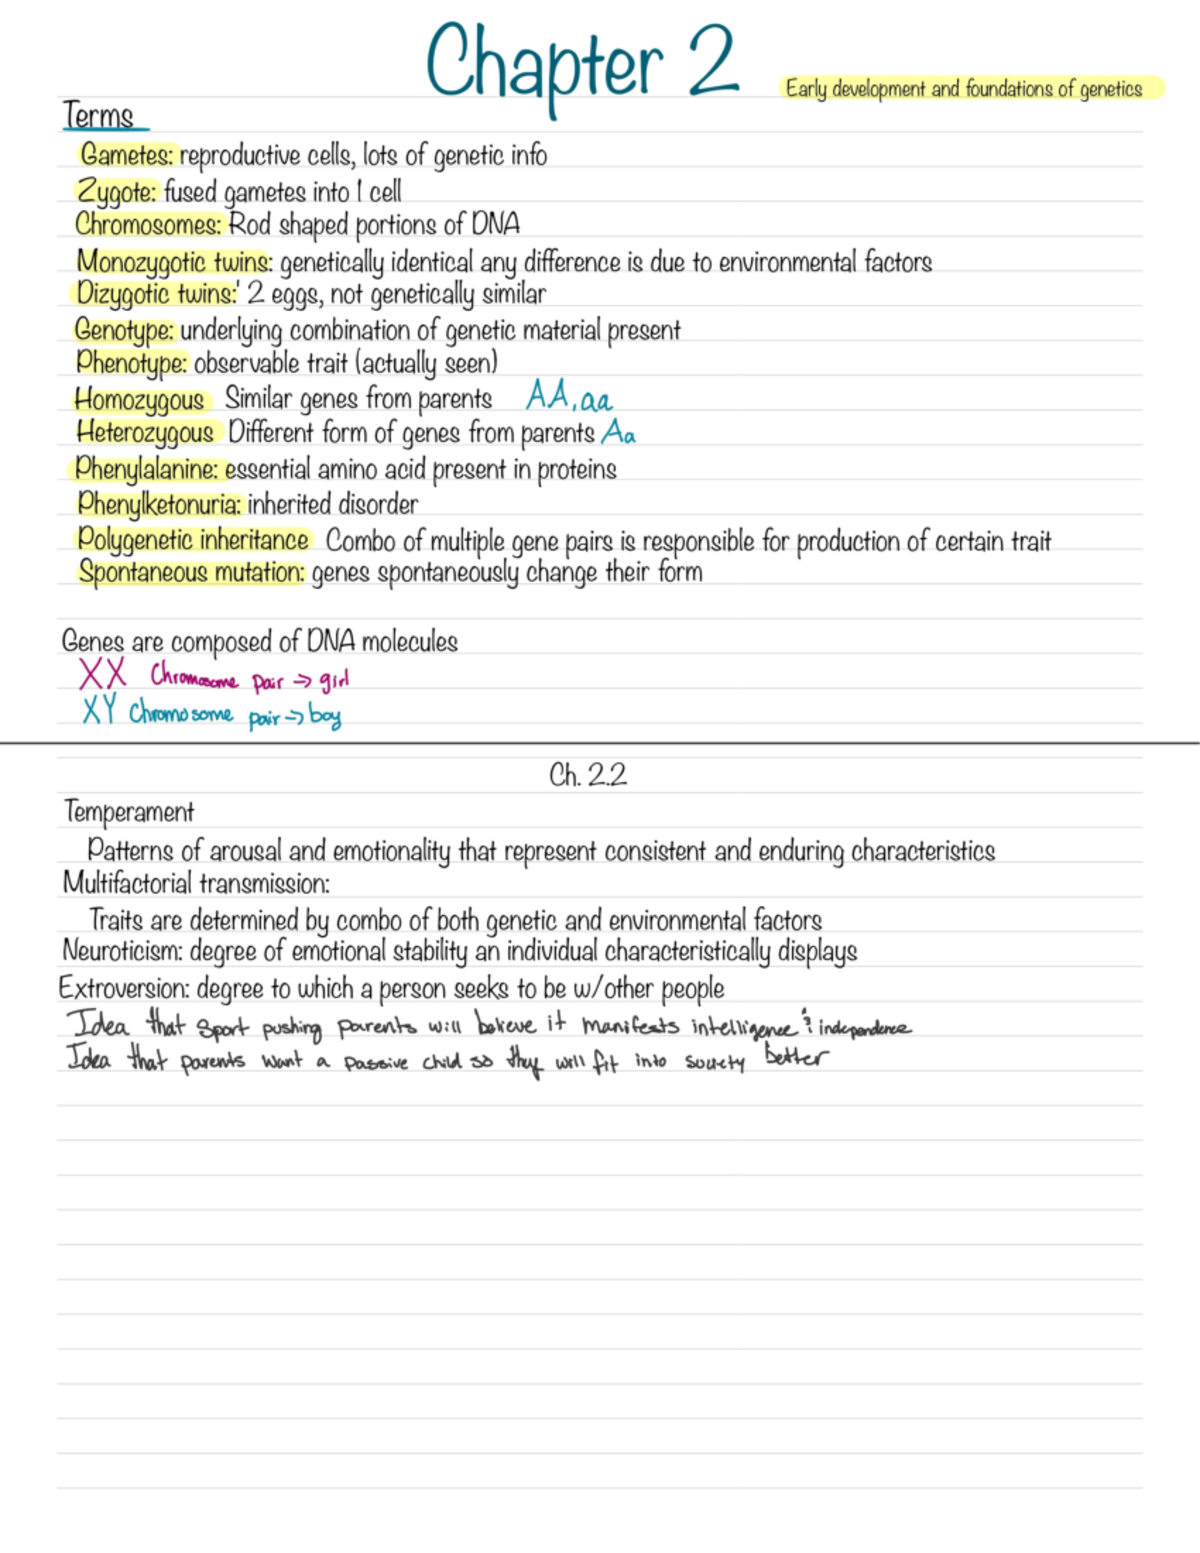 Chapter 2
Early development and foundations of genetics
Terms
Gametes: reproductive cells, lots of genetic info
Zygote: fused gametes into 1 cell
Chromosomes: Rod shaped portions of DNA
Monozygotic twins: genetically identical any difference is due to environmental factors
Dizygotic twins:' 2 eggs, not genetically similar
Genotype: underlying combination of genetic material present
Phenotype: observable trait (actually seen)
Homozygous Similar genes from parents AA, aa
Heterozygous Different form of genes from parents Aa
Phenylalanine: essential amino acid present in proteins
Phenylketonuria: inherited disorder
Polygenetic inheritance Combo of multiple gene pairs is responsible for production of certain trait
Spontaneous mutation: genes spontaneously change their form
Genes are composed of DNA molecules
XX Chromosome pair → girl
XY Chromosome pair → boy
Ch. 2.2
Temperament
Patterns of arousal and emotionality that represent consistent and enduring characteristics
Multifactorial transmission:
Traits are determined by combo of both genetic and environmental factors
Neuroticism: degree of emotional stability an individual characteristically displays
Extroversion: degree to which a person seeks to be w/other people
Idea that sport pushing parents will believe it manifests intelligence & independence
Idea that parents want a passive child so they will fit into society better